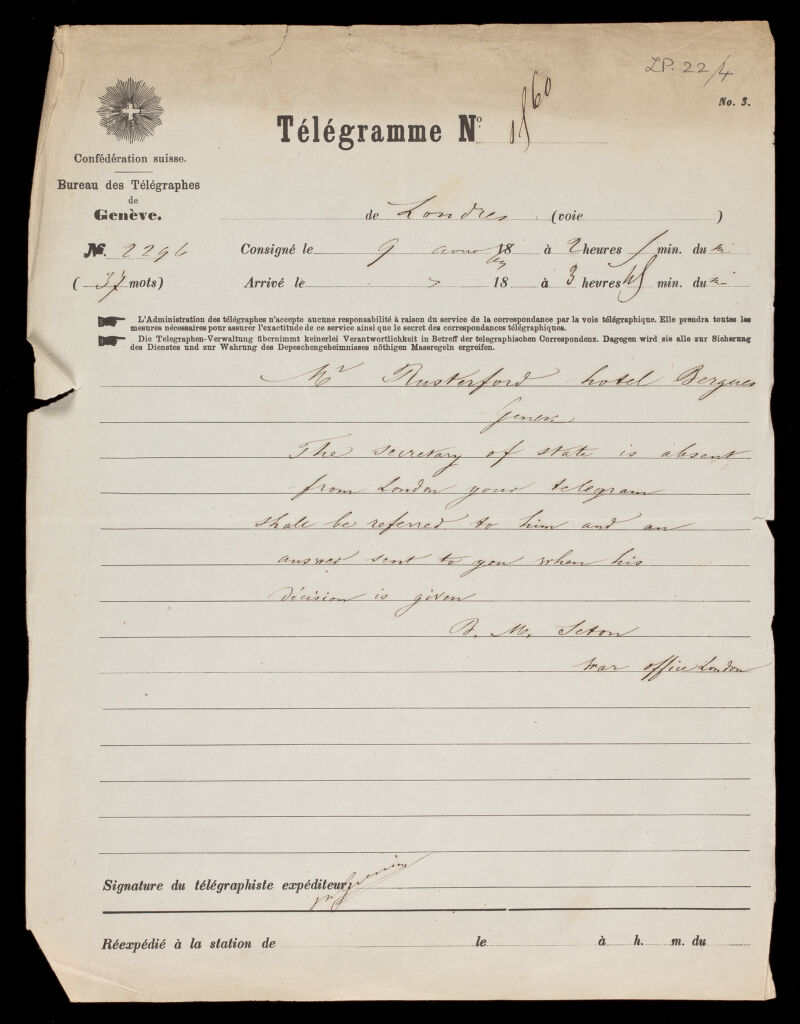 LP. 22/4
No. 3.
Télégramme No. 1560
Confédération suisse.
Bureau des Télégraphes
de
Genève.
de Londres (voie )
No. 2296 Consigné le 9 18 à 2 heures min. du
(37 mots) Arrivé le 18 à 3 hevres 45 min. du
L'Administration des télégraphes n'accepte aucune responsabilité à raison du service de la correspondance par la voie télégraphique. Elle prendra toutes les
mesures nécessaires pour assurer l'exactitude de ce service ainsi que le secret des correspondances télégraphiques.
Die Telegraphen-Verwaltung übernimmt keinerlei Verantwortlichkeit in Betreff der telegraphischen Correspondenz. Dagegen wird sie alle zur Sicherung
des Dienstes und zur Wahrung des Depeschengeheimnisses nöthigen Massregeln ergreifen.
Mr Rusterford hotel Bergues
Geneve
The secretary of state is absent
from London your telegram
shall be referred to him and an
answer sent to you when his
décision is given
B. M. Seton
War office London
Signature du télégraphiste expéditeur,
Réexpédié à la station de le à h. m. du